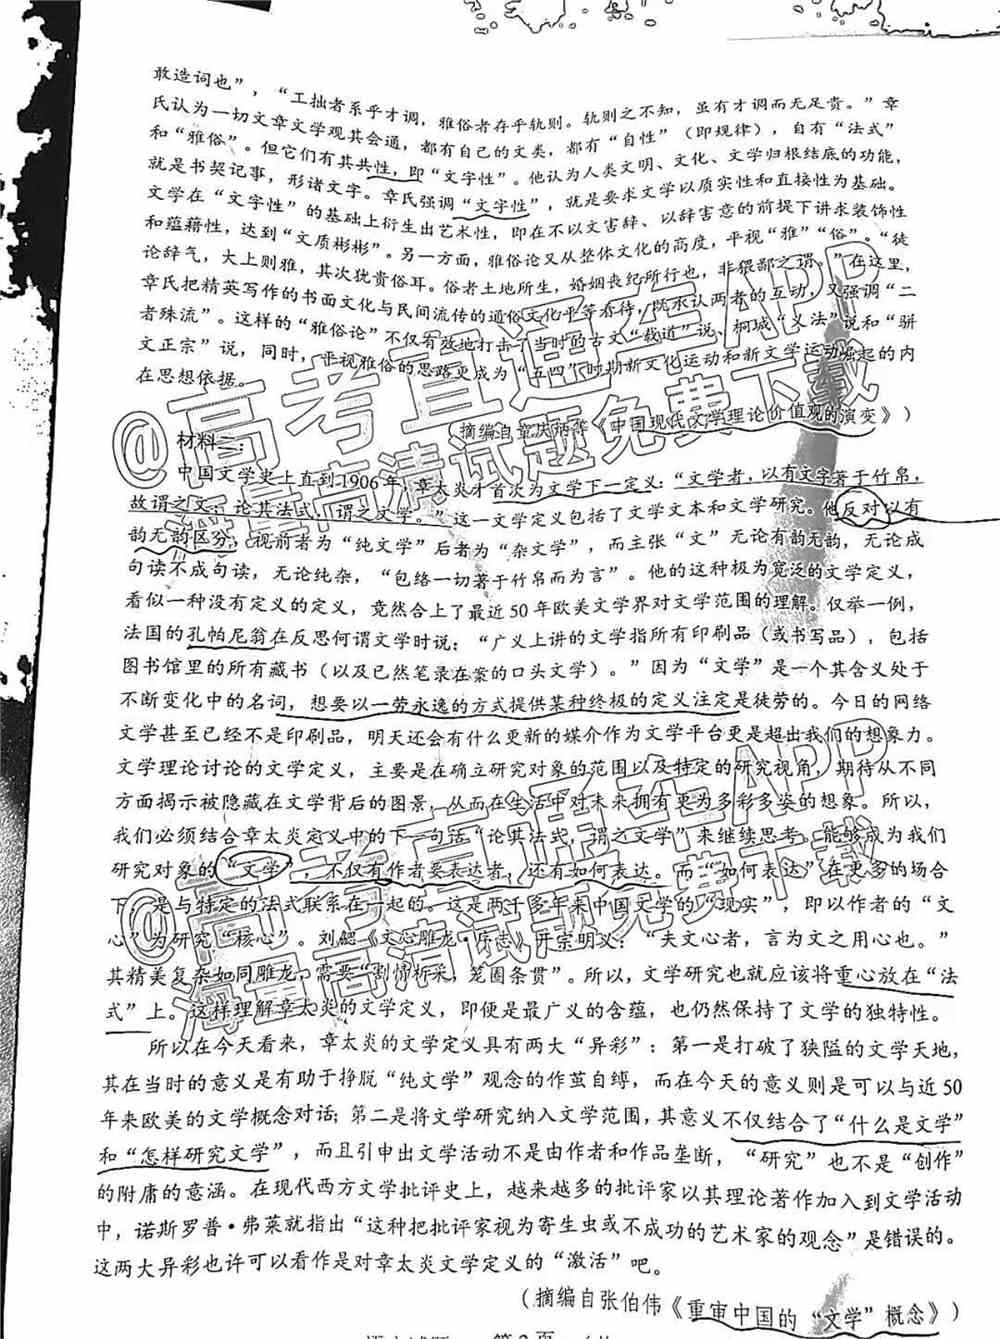 敢造词也”，“工拙者系乎才调，雅俗者存乎轨则。轨则之不知，虽有才调而无足贵。”章
氏认为一切文章文学观其会通，都有自己的文类，都有“自性”（即规律），自有“法式”
和“雅俗”。但它们有其共性，即“文字性”。他认为人类文明、文化、文学归根结底的功能，
就是书契记事，形诸文字。章氏强调“文字性”，就是要求文学以质实性和直接性为基础。
文学在“文字性”的基础上衍生出艺术性，即在不以文害辞、以辞害意的前提下讲求装饰性
和蕴藉性，达到“文质彬彬”。另一方面，雅俗论又从整体文化的高度，平视“雅”“俗”。“徒
论辞气，大上则雅，其次犹贵俗耳。俗者土地所生，婚姻丧纪所行也，非猥鄙之谓。”在这里，
章氏把精英写作的书面文化与民间流传的通俗文化平等看待，既承认两者的互动，又强调“二
者殊流”。这样的“雅俗论”不仅有效地打击了当时的古文“载道”说、桐城“义法”说和“骈
文正宗”说，同时，平视雅俗的思路更成为“五四”时期新文化运动和新文学运动崛起的内
在思想依据。
（摘编自童庆炳等《中国现代文学理论价值观的演变》）
材料二：
中国文学史上直到1906年，章太炎才首次为文学下一定义：“文学者，以有文字著于竹帛，
故谓之文；论其法式，谓之文学。”这一文学定义包括了文学文本和文学研究。他反对以有
韵无韵区分，视前者为“纯文学”后者为“杂文学”，而主张“文”无论有韵无韵，无论成
句读不成句读，无论纯杂，“包络一切著于竹帛而为言”。他的这种极为宽泛的文学定义，
看似一种没有定义的定义，竟然合上了最近50年欧美文学界对文学范围的理解。仅举一例，
法国的孔帕尼翁在反思何谓文学时说：“广义上讲的文学指所有印刷品（或书写品），包括
图书馆里的所有藏书（以及已然笔录在案的口头文学）。”因为“文学”是一个其含义处于
不断变化中的名词，想要以一劳永逸的方式提供某种终极的定义注定是徒劳的。今日的网络
文学甚至已经不是印刷品，明天还会有什么更新的媒介作为文学平台更是超出我们的想象力。
文学理论讨论的文学定义，主要是在确立研究对象的范围以及特定的研究视角，期待从不同
方面揭示被隐藏在文学背后的图景，从而在生活中对未来拥有更为多彩多姿的想象。所以，
我们必须结合章太炎定义中的下一句话“论其法式，谓之文学”来继续思考。能够成为我们
研究对象的“文学”，不仅有作者要表达者，还有如何表达。而“如何表达”在更多的场合
下，是与特定的法式联系在一起的。这是两千多年来中国文学的“现实”，即以作者的“文
心”为研究“核心”。刘勰《文心雕龙·序志》开宗明义：“夫文心者，言为文之用心也。”
其精美复杂如同雕龙，需要“割情析采，笼圈条贯”。所以，文学研究也就应该将重心放在“法
式”上。这样理解章太炎的文学定义，即便是最广义的含蕴，也仍然保持了文学的独特性。
所以在今天看来，章太炎的文学定义具有两大“异彩”：第一是打破了狭隘的文学天地，
其在当时的意义是有助于挣脱“纯文学”观念的作茧自缚，而在今天的意义则是可以与近50
年来欧美的文学概念对话；第二是将文学研究纳入文学范围，其意义不仅结合了“什么是文学”
和“怎样研究文学”，而且引申出文学活动不是由作者和作品垄断，“研究”也不是“创作”
的附庸的意涵。在现代西方文学批评史上，越来越多的批评家以其理论著作加入到文学活动
中，诺斯罗普·弗莱就指出“这种把批评家视为寄生虫或不成功的艺术家的观念”是错误的。
这两大异彩也许可以看作是对章太炎文学定义的“激活”吧。
（摘编自张伯伟《重审中国的“文学”概念》）
@高考直通车APP
海量高清试题免费下载
@高考直通车APP
海量高清试题免费下载